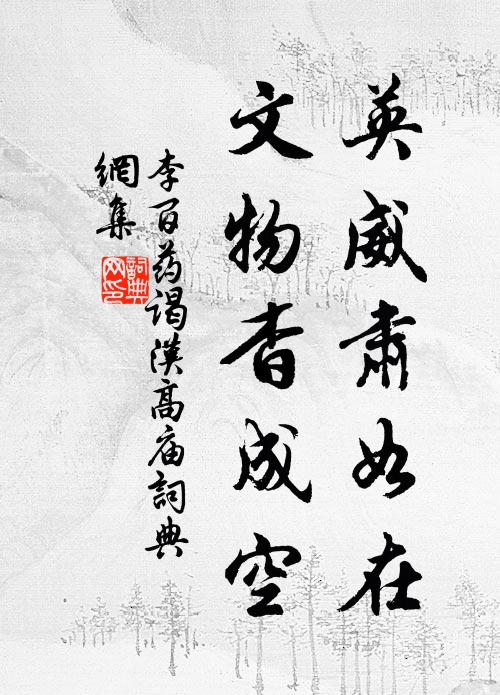 英威肅如在
文物杳成空
李百药谒漢高庙詞典
網集
詞典
网印